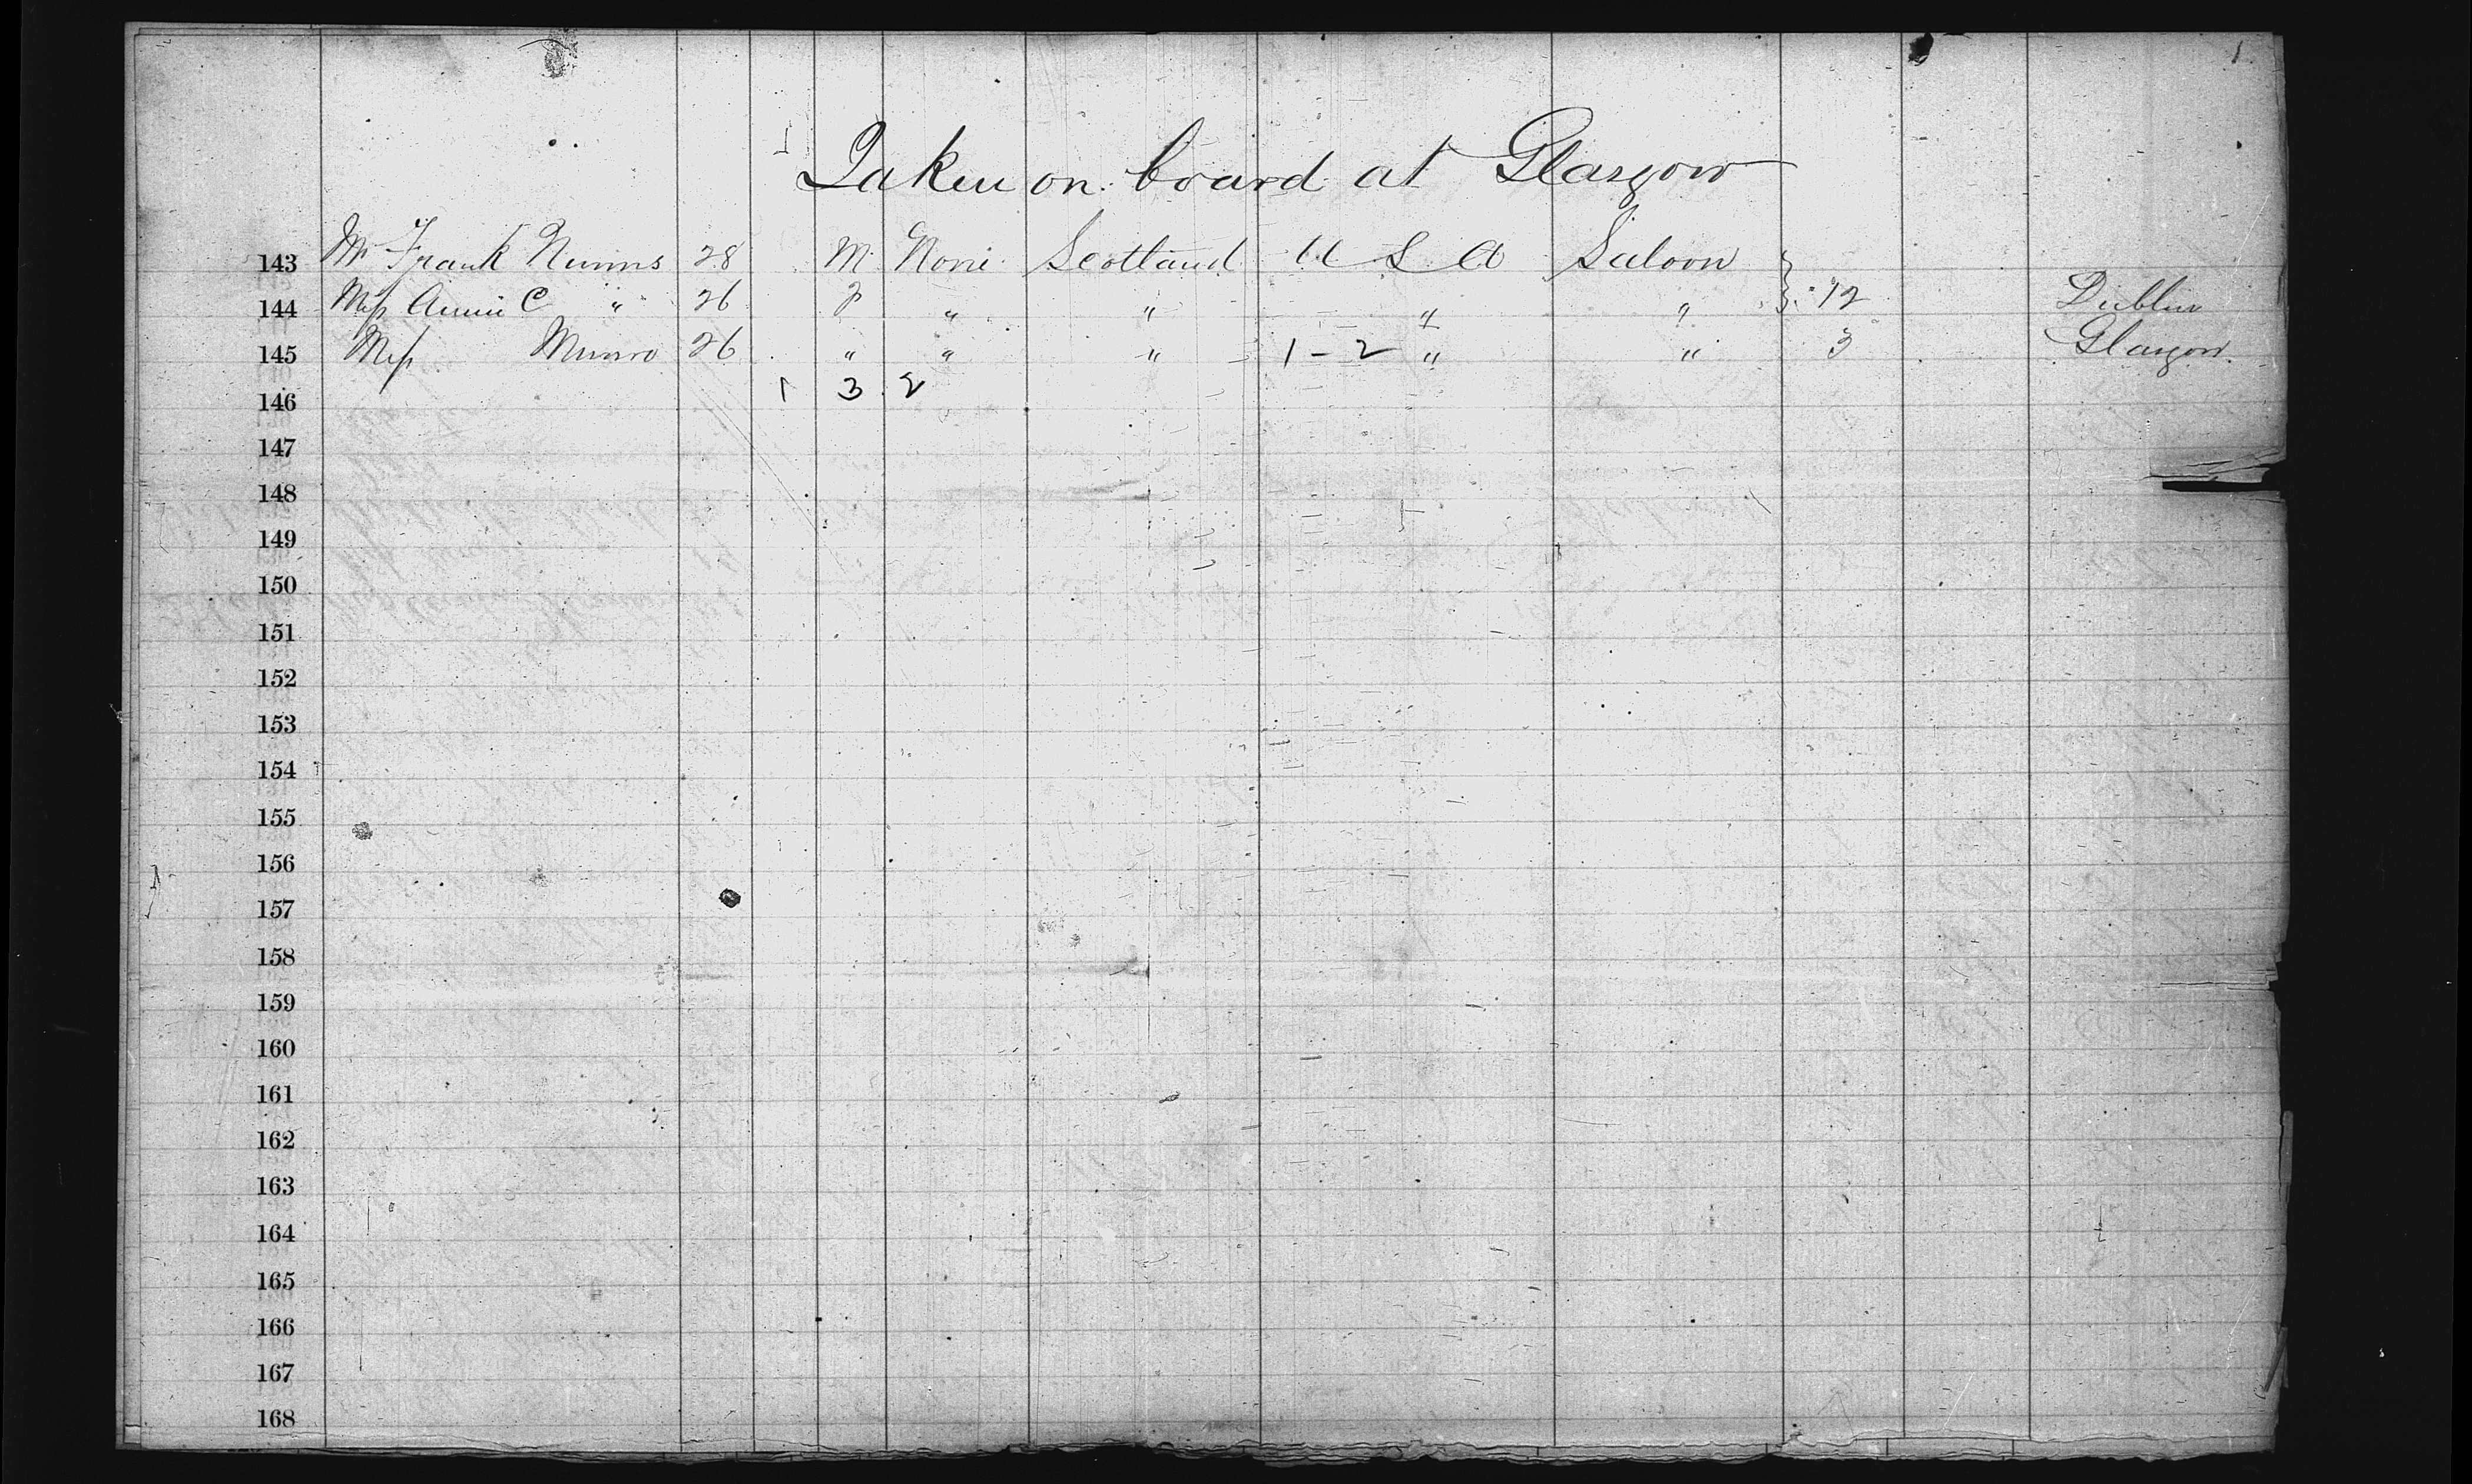 Taken on board at Glasgow
143 Mr Frank Nunns 28 M None Scotland U S A Saloon
144 Miss Annie C " 26 F " " " " 12 Dublin
145 Miss Munro 26 " " " 1 - 2 " " 3 Glasgow.
1 3 2
146
147
148
149
150
151
152
153
154
155
156
157
158
159
160
161
162
163
164
165
166
167
168